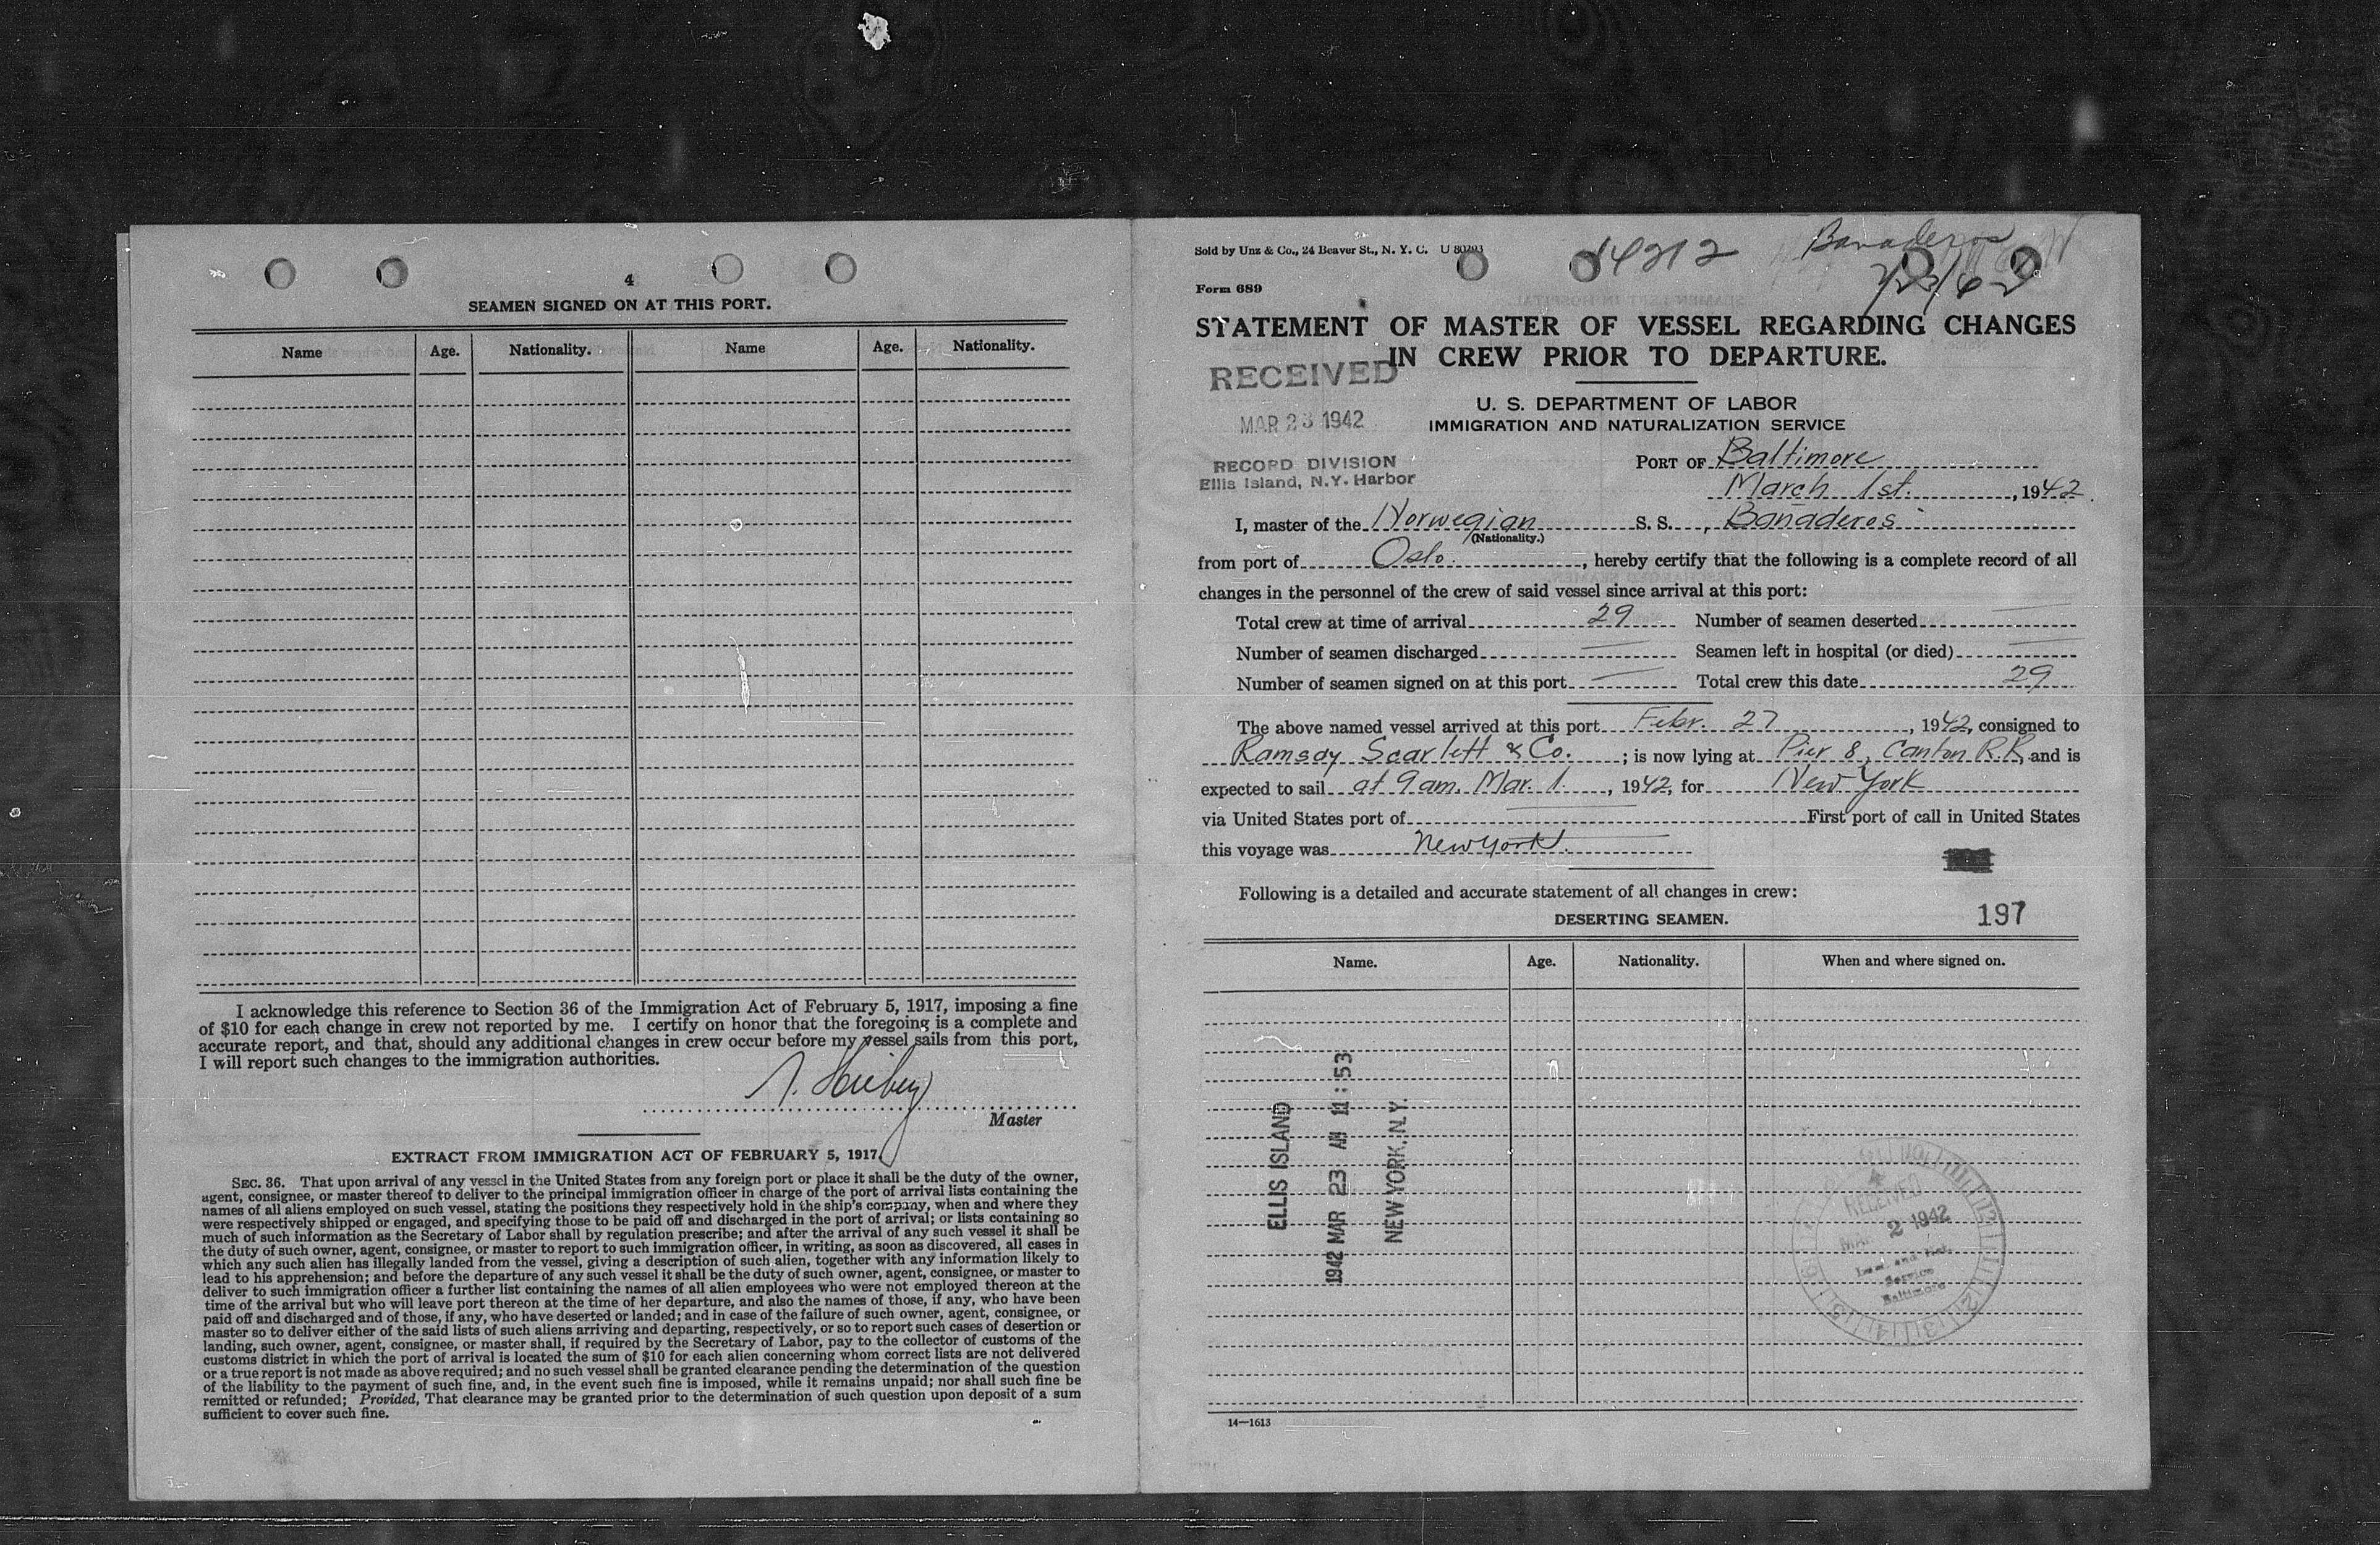 4
SEAMEN SIGNED ON AT THIS PORT.
Name Age. Nationality. Name Age. Nationality.
I acknowledge this reference to Section 36 of the Immigration Act of February 5, 1917, imposing a fine
of $10 for each change in crew not reported by me. I certify on honor that the foregoing is a complete and
accurate report, and that, should any additional changes in crew occur before my vessel sails from this port,
I will report such changes to the immigration authorities.
Master
EXTRACT FROM IMMIGRATION ACT OF FEBRUARY 5, 1917.
SEC. 36. That upon arrival of any vessel in the United States from any foreign port or place it shall be the duty of the owner,
agent, consignee, or master thereof to deliver to the principal immigration officer in charge of the port of arrival lists containing the
names of all aliens employed on such vessel, stating the positions they respectively hold in the ship's company, when and where they
were respectively shipped or engaged, and specifying those to be paid off and discharged in the port of arrival; or lists containing so
much of such information as the Secretary of Labor shall by regulation prescribe; and after the arrival of any such vessel it shall be
the duty of such owner, agent, consignee, or master to report to such immigration officer, in writing, as soon as discovered, all cases in
which any such alien has illegally landed from the vessel, giving a description of such alien, together with any information likely to
lead to his apprehension; and before the departure of any such vessel it shall be the duty of such owner, agent, consignee, or master to
deliver to such immigration officer a further list containing the names of all alien employees who were not employed thereon at the
time of the arrival but who will leave port thereon at the time of her departure, and also the names of those, if any, who have been
paid off and discharged and of those, if any, who have deserted or landed; and in case of the failure of such owner, agent, consignee, or
master so to deliver either of the said lists of such aliens arriving and departing, respectively, or so to report such cases of desertion or
landing, such owner, agent, consignee, or master shall, if required by the Secretary of Labor, pay to the collector of customs of the
customs district in which the port of arrival is located the sum of $10 for each alien concerning whom correct lists are not delivered
or a true report is not made as above required; and no such vessel shall be granted clearance pending the determination of the question
of the liability to the payment of such fine, and, in the event such fine is imposed, while it remains unpaid; nor shall such fine be
remitted or refunded; Provided, That clearance may be granted prior to the determination of such question upon deposit of a sum
sufficient to cover such fine.
Sold by Unz & Co., 24 Beaver St., N. Y. C. U 80793
14212 Banaderos
Form 689
STATEMENT OF MASTER OF VESSEL REGARDING CHANGES
IN CREW PRIOR TO DEPARTURE.
RECEIVED
MAR 23 1942
RECORD DIVISION
Ellis Island, N.Y. Harbor
U. S. DEPARTMENT OF LABOR
IMMIGRATION AND NATURALIZATION SERVICE
PORT OF Baltimore
March 1st., 1942.
I, master of the Norwegian S. S., Bañaderos
(Nationality.)
from port of Oslo., hereby certify that the following is a complete record of all
changes in the personnel of the crew of said vessel since arrival at this port:
Total crew at time of arrival 29 Number of seamen deserted —
Number of seamen discharged — Seamen left in hospital (or died) —
Number of seamen signed on at this port — Total crew this date 29
The above named vessel arrived at this port Febr. 27, 1942, consigned to
Ramsay Scarlett & Co.; is now lying at Pier 8, Canton R.R, and is
expected to sail at 9 am. Mar. 1., 1942, for New York
via United States port of — First port of call in United States
this voyage was New York.
Following is a detailed and accurate statement of all changes in crew:
DESERTING SEAMEN.
197
Name. Age. Nationality. When and where signed on.
ELLIS ISLAND
1942 MAR 23 AM 11:53
NEW YORK. N.Y.
RECEIVED
MAR 2 1942
Service
Baltimore
14—1613